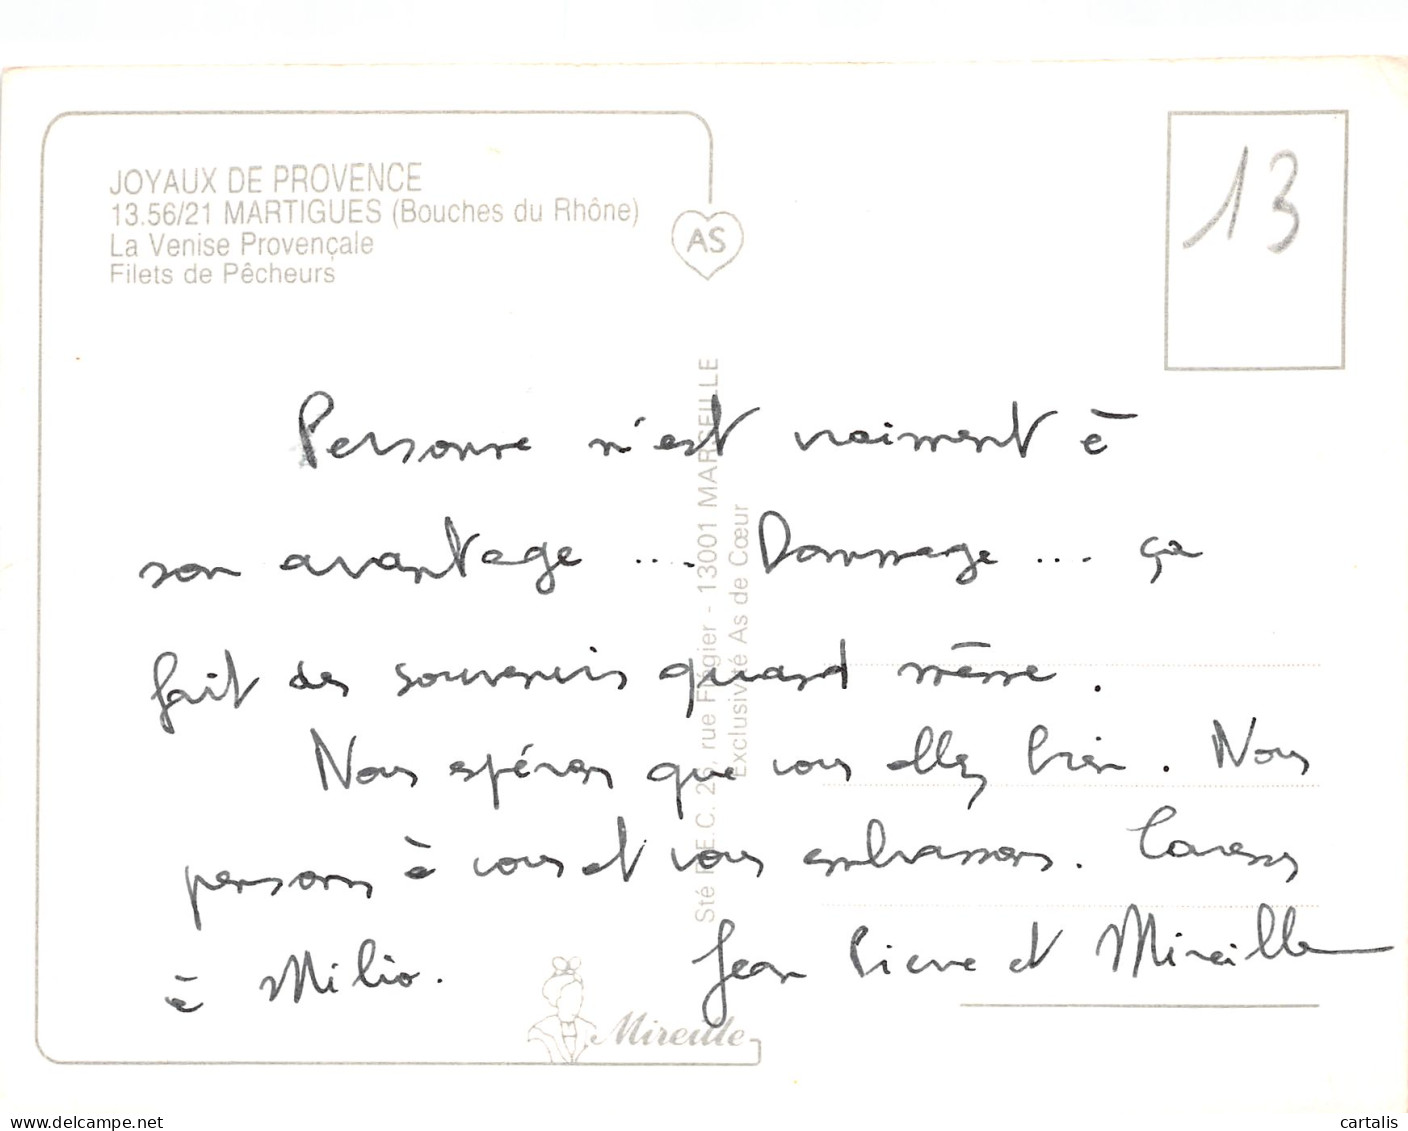 JOYAUX DE PROVENCE
13.56/21 MARTIGUES (Bouches du Rhône)
La Venise Provençale
Filets de Pêcheurs
AS
13
Personne n'est vraiment à
son avantage ... Dommage ... ça
fait des souvenirs quand même.
Nous espérons que vous allez bien. Nous
pensons à vous et vous embrassons. Caresses
à Milio. Jean Pierre et Mireille
Mireille
13001 MARSEILLE
Exclusivité As de Cœur
cartalis
delcampe.net